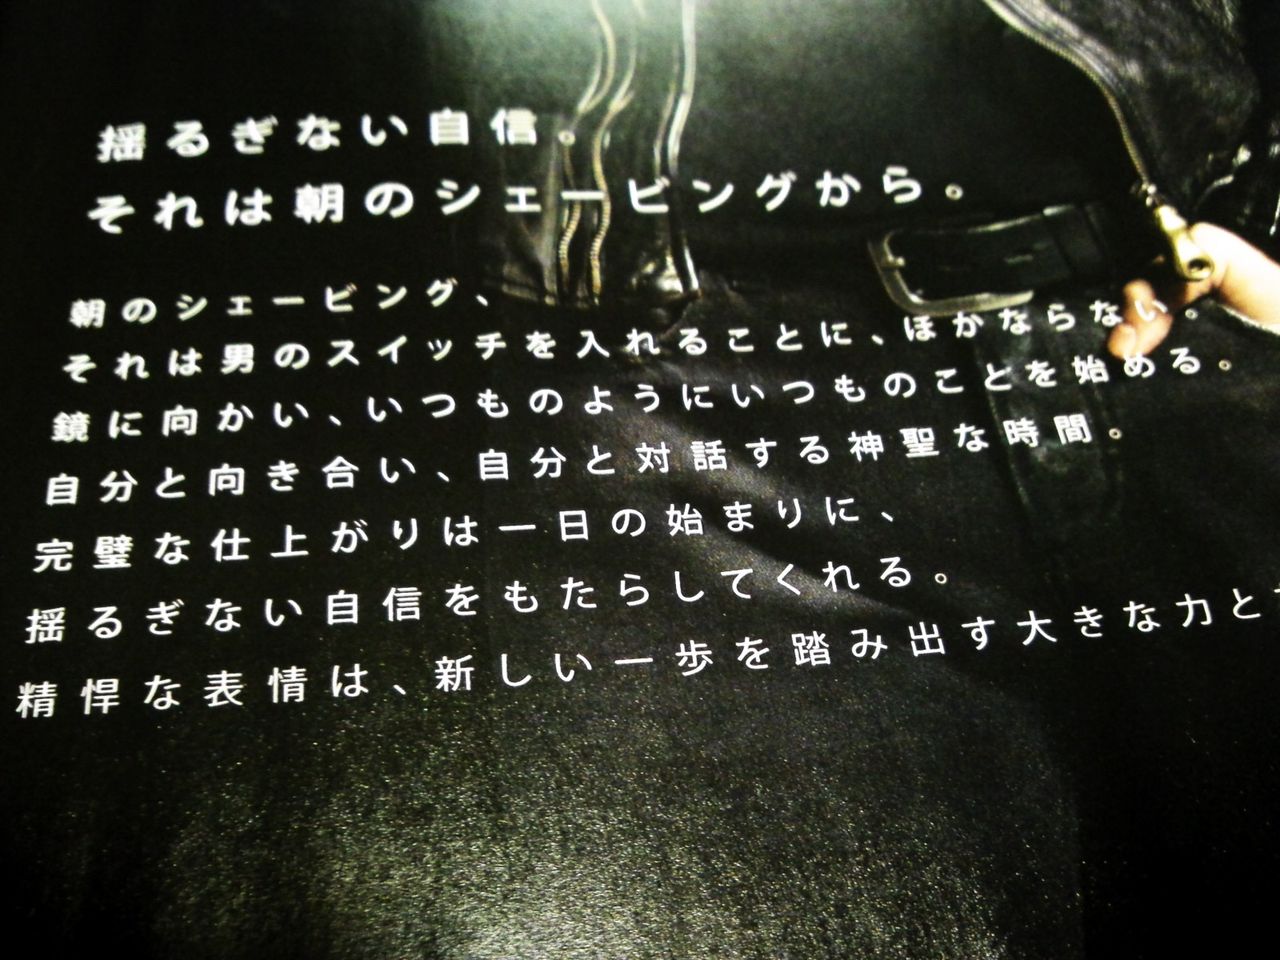 揺るぎない自信。
それは朝のシェービングから。
朝のシェービング、
それは男のスイッチを入れることに、ほかならない。
鏡に向かい、いつものようにいつものことを始める。
自分と向き合い、自分と対話する神聖な時間。
完璧な仕上がりは一日の始まりに、
揺るぎない自信をもたらしてくれる。
精悍な表情は、新しい一歩を踏み出す大きな力と